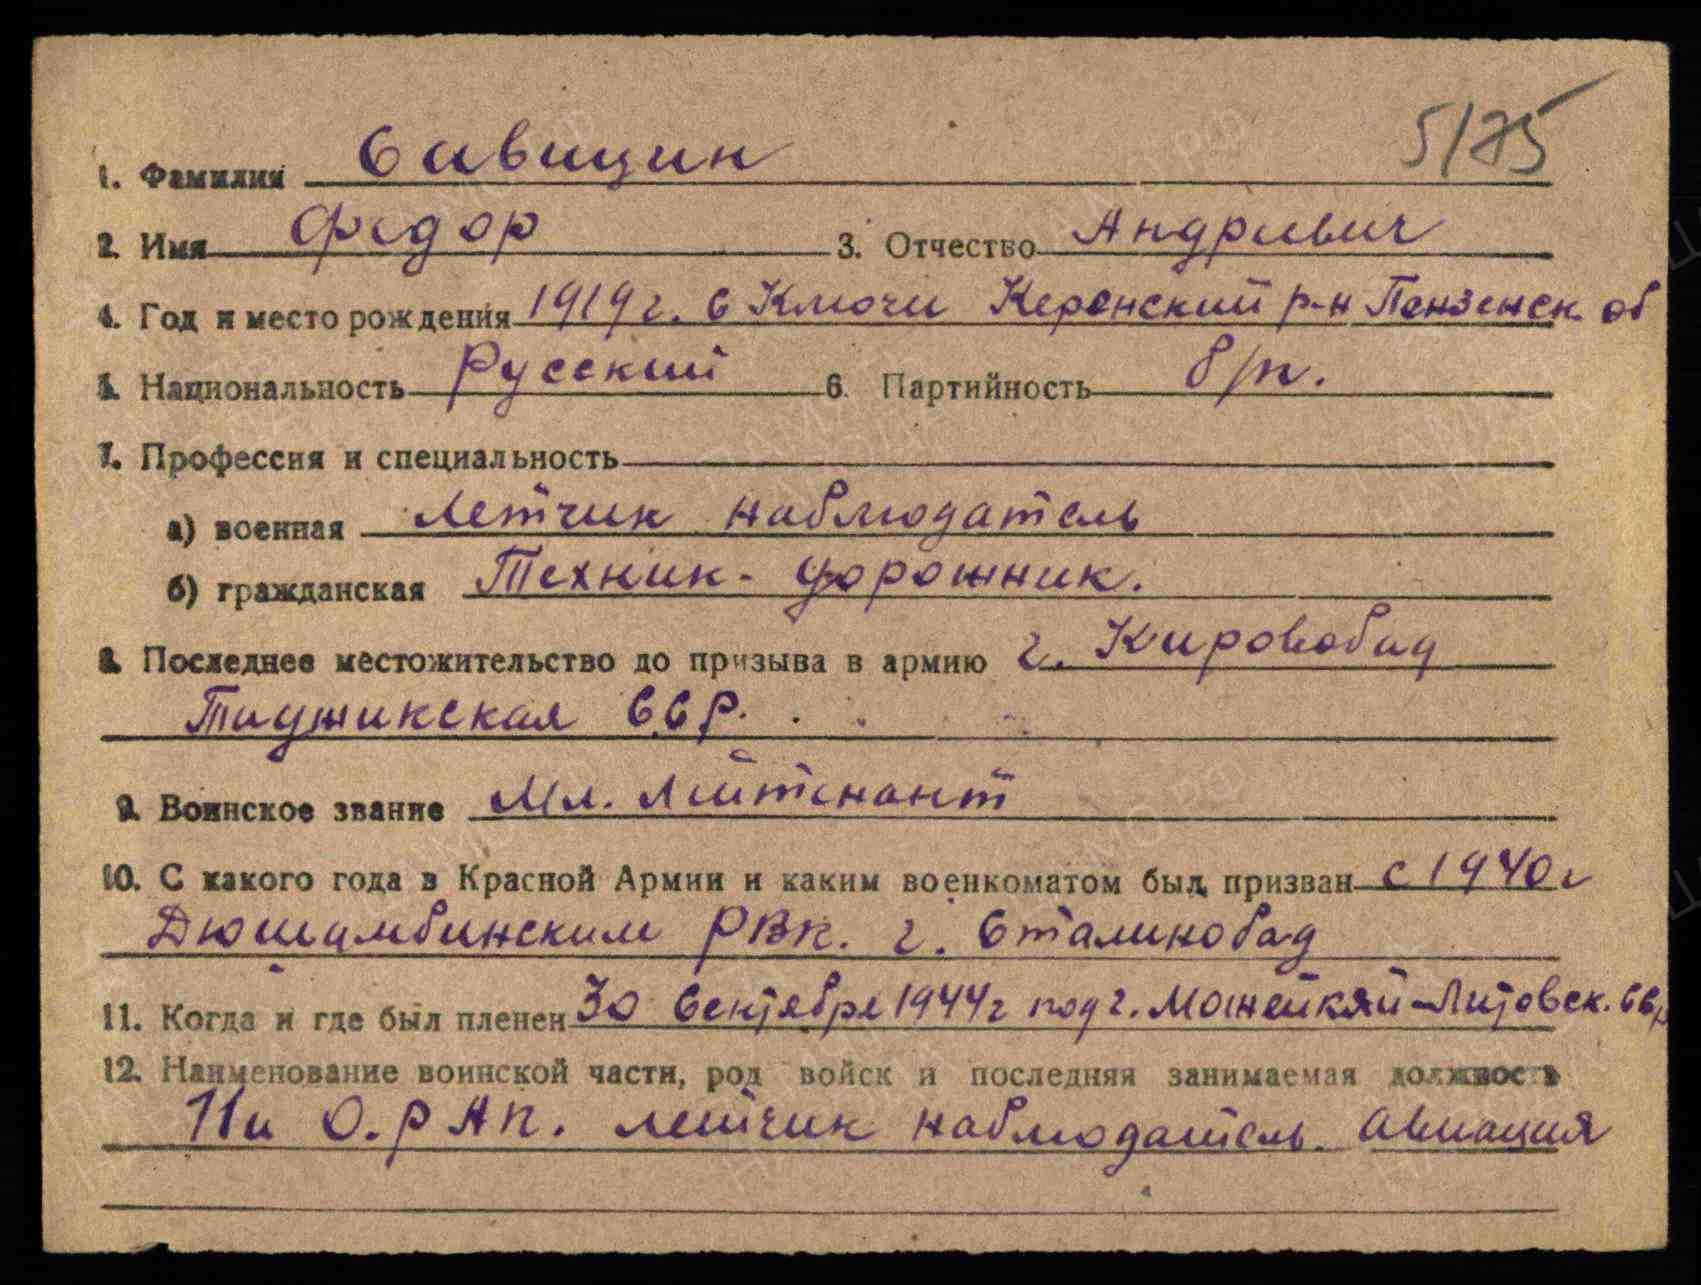 5/75
1. Фамилия Савицин
2. Имя Федор 3. Отчество Андреевич
4. Год и место рождения 1919 г. с Ключи Керенский р-н Пензенск. об
5. Национальность Русский 6. Партийность б/п.
7. Профессия и специальность
а) военная Летчик наблюдатель
б) гражданская Техник-дорожник.
8. Последнее местожительство до призыва в армию г. Кировобад
Таджикская ССР.
9. Воинское звание Мл. Лейтенант
10. С какого года в Красной Армии и каким военкоматом был призван с 1940 г
Дюшамбинским РВК. г. Сталинобад
11. Когда и где был пленен 30 Сентября 1944 г под г. Можейкяй-Литовск. ССР
12. Наименование воинской части, род войск и последняя занимаемая должность
11й О.РАП. летчик наблюдатель. авиация